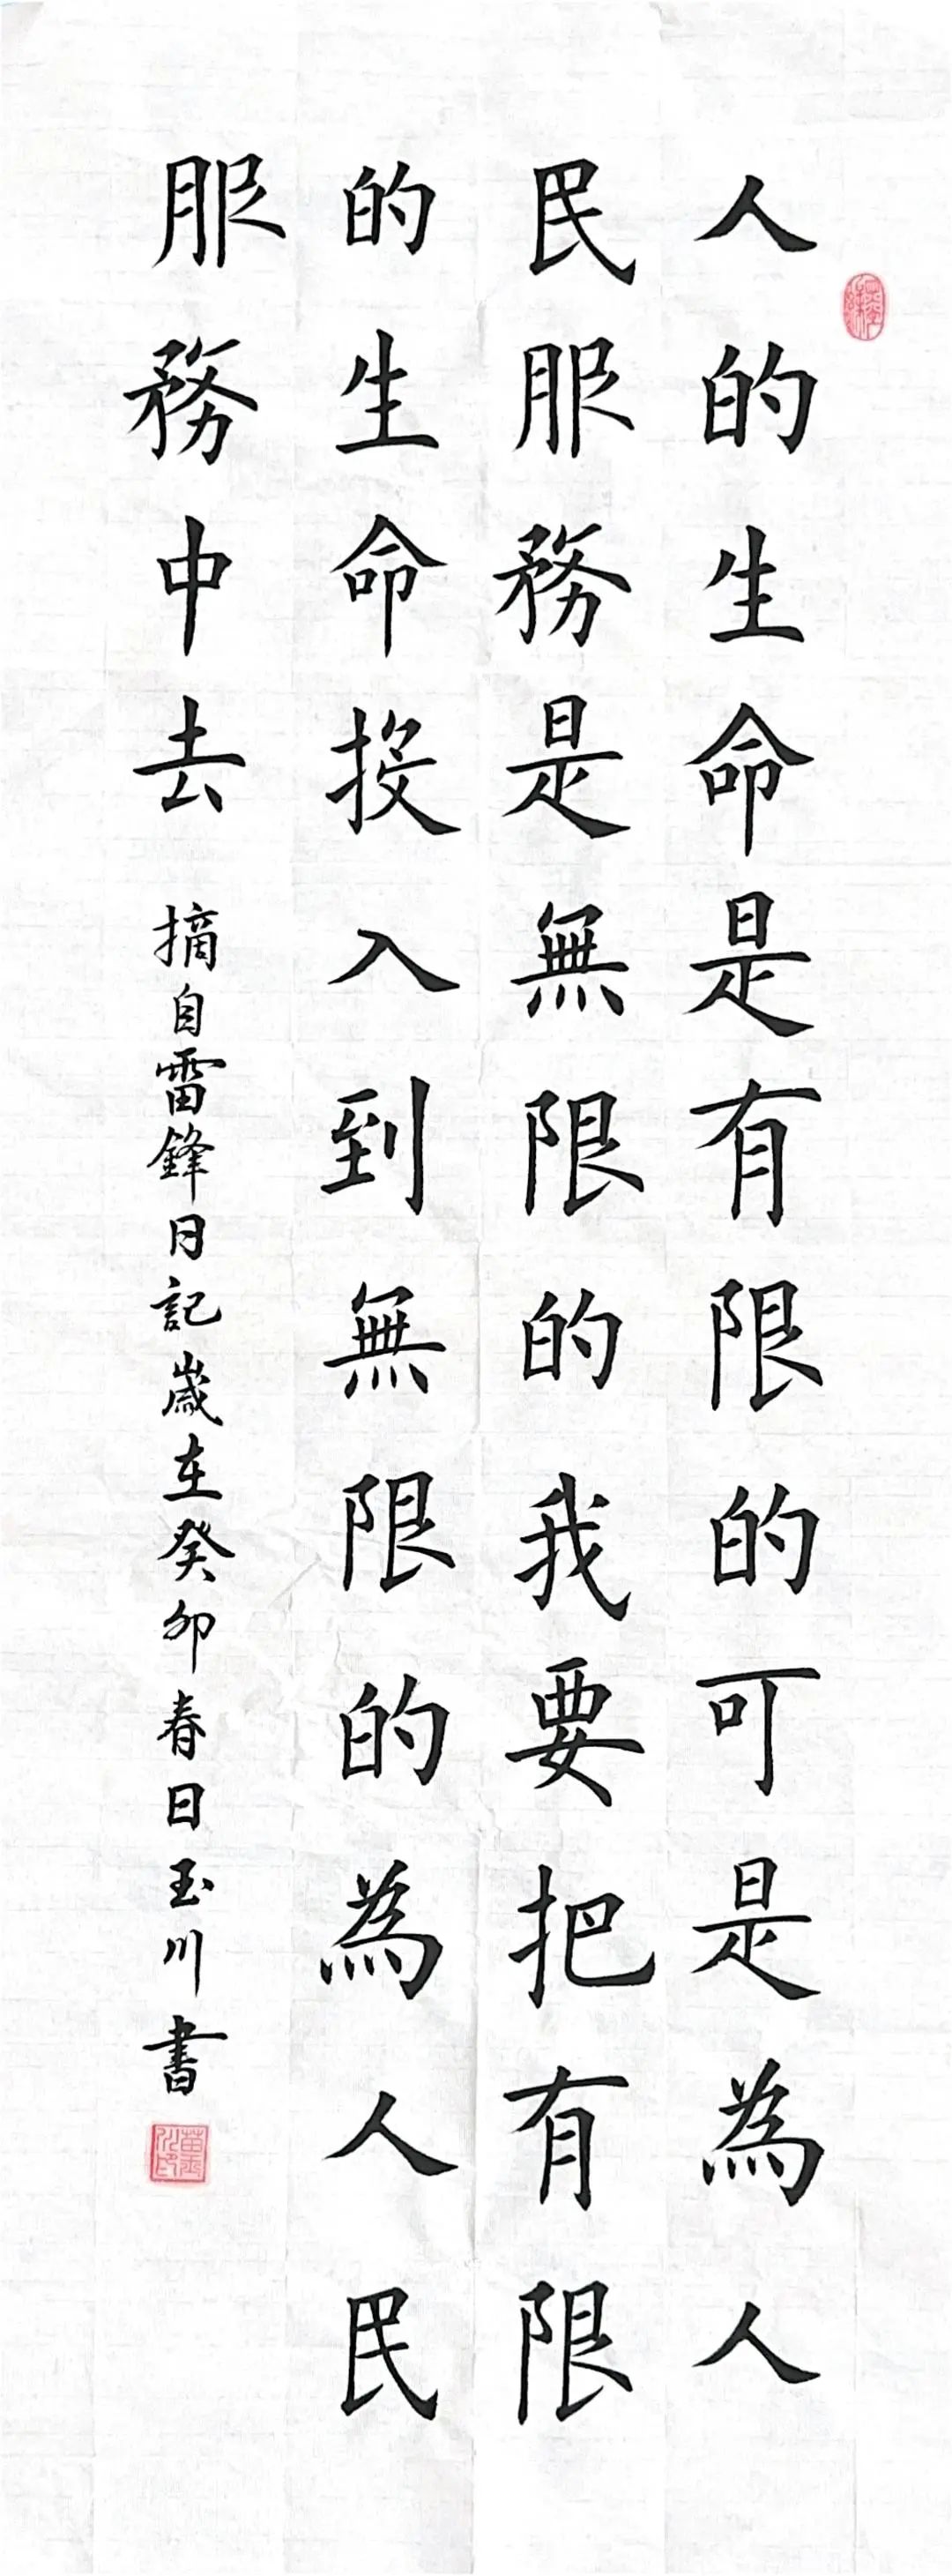 人的生命是有限的可是為人
民服務是無限的我要把有限
的生命投入到無限的為人民
服務中去 摘自雷鋒日記歲在癸卯春日玉川書